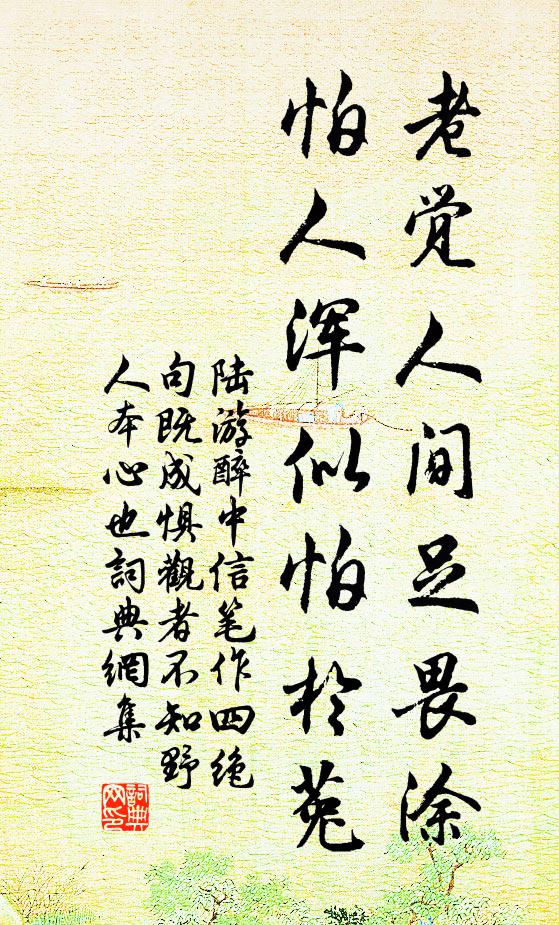 老觉人间足畏涂
怕人浑似怕於菟
陆游醉中信笔作四绝
句既成惧觀者不知野
人本心也詞典網集
詞典
网印